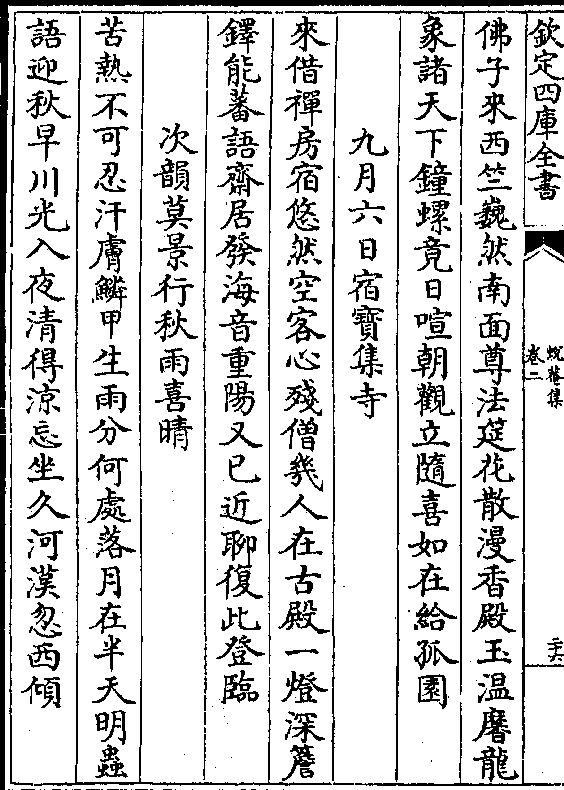 欽定四庫全書
蛻菴集
卷二
二十六
佛子來西竺巍然南面尊法筵花散漫香殿玉温麐龍
象諸天下鐘螺竟日喧朝觀立隨喜如在給孤園
九月六日宿寶集寺
來借禪房宿悠然空客心殘僧幾人在古殿一燈深簷
鐸能蕃語齋居發海音重陽又已近聊復此登臨
次韻莫景行秋雨喜晴
苦熱不可忍汗膚鱗甲生雨分何處落月在半天明蟲
語迎秋早川光入夜清得涼忘坐久河漢忽西傾